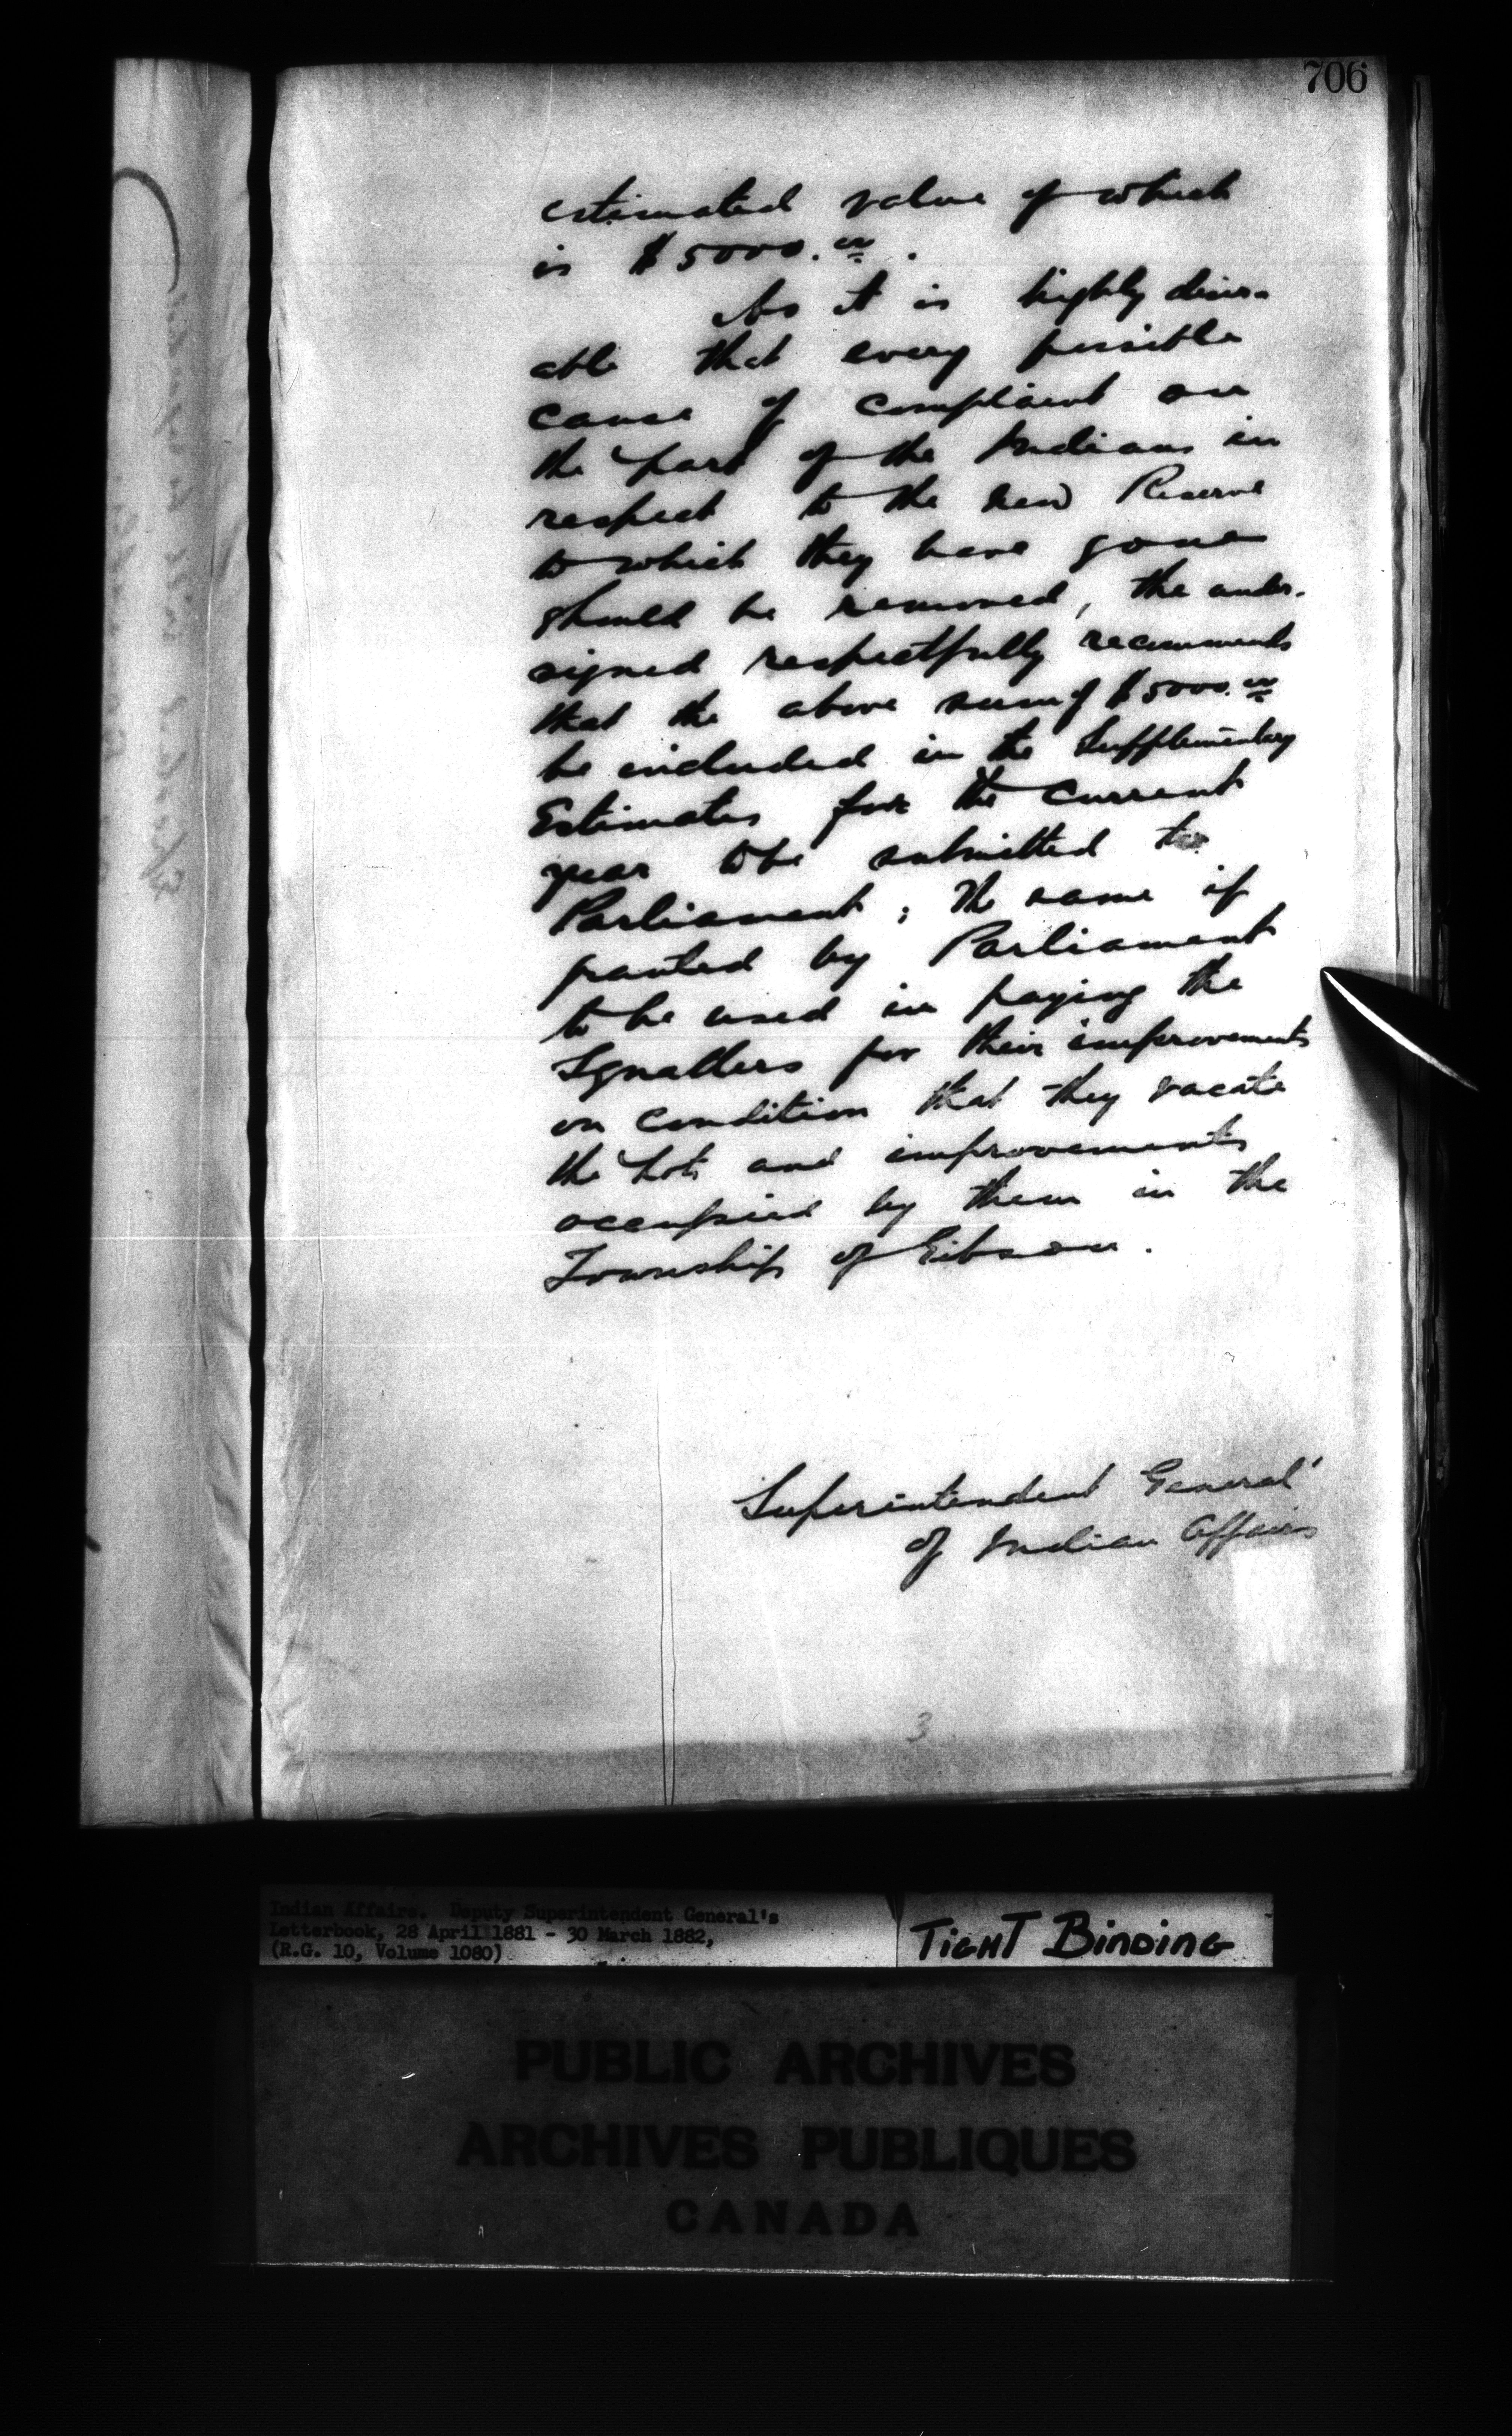 706
estimated value of which
is $5000.00.
As it is highly desir-
able that every possible
cause of complaint on
the part of the Indians in
respect to the new Reserve
to which they have gone
should be removed, the under-
signed respectfully recommends
that the above sum of $5000.00
be included in the Supplementary
Estimates for the current
year to be submitted to
Parliament; the same if
granted by Parliament
to be used in paying the
Squatters for their improvements
on condition that they vacate
the Lots and improvements
occupied by them in the
Township of Gibson.
Superintendent General
of Indian Affairs
3
Indian Affairs. Deputy Superintendent General's
Letterbook, 28 April 1881 - 30 March 1882,
(R.G. 10, Volume 1080)
TIGHT BINDING
PUBLIC ARCHIVES
ARCHIVES PUBLIQUES
CANADA